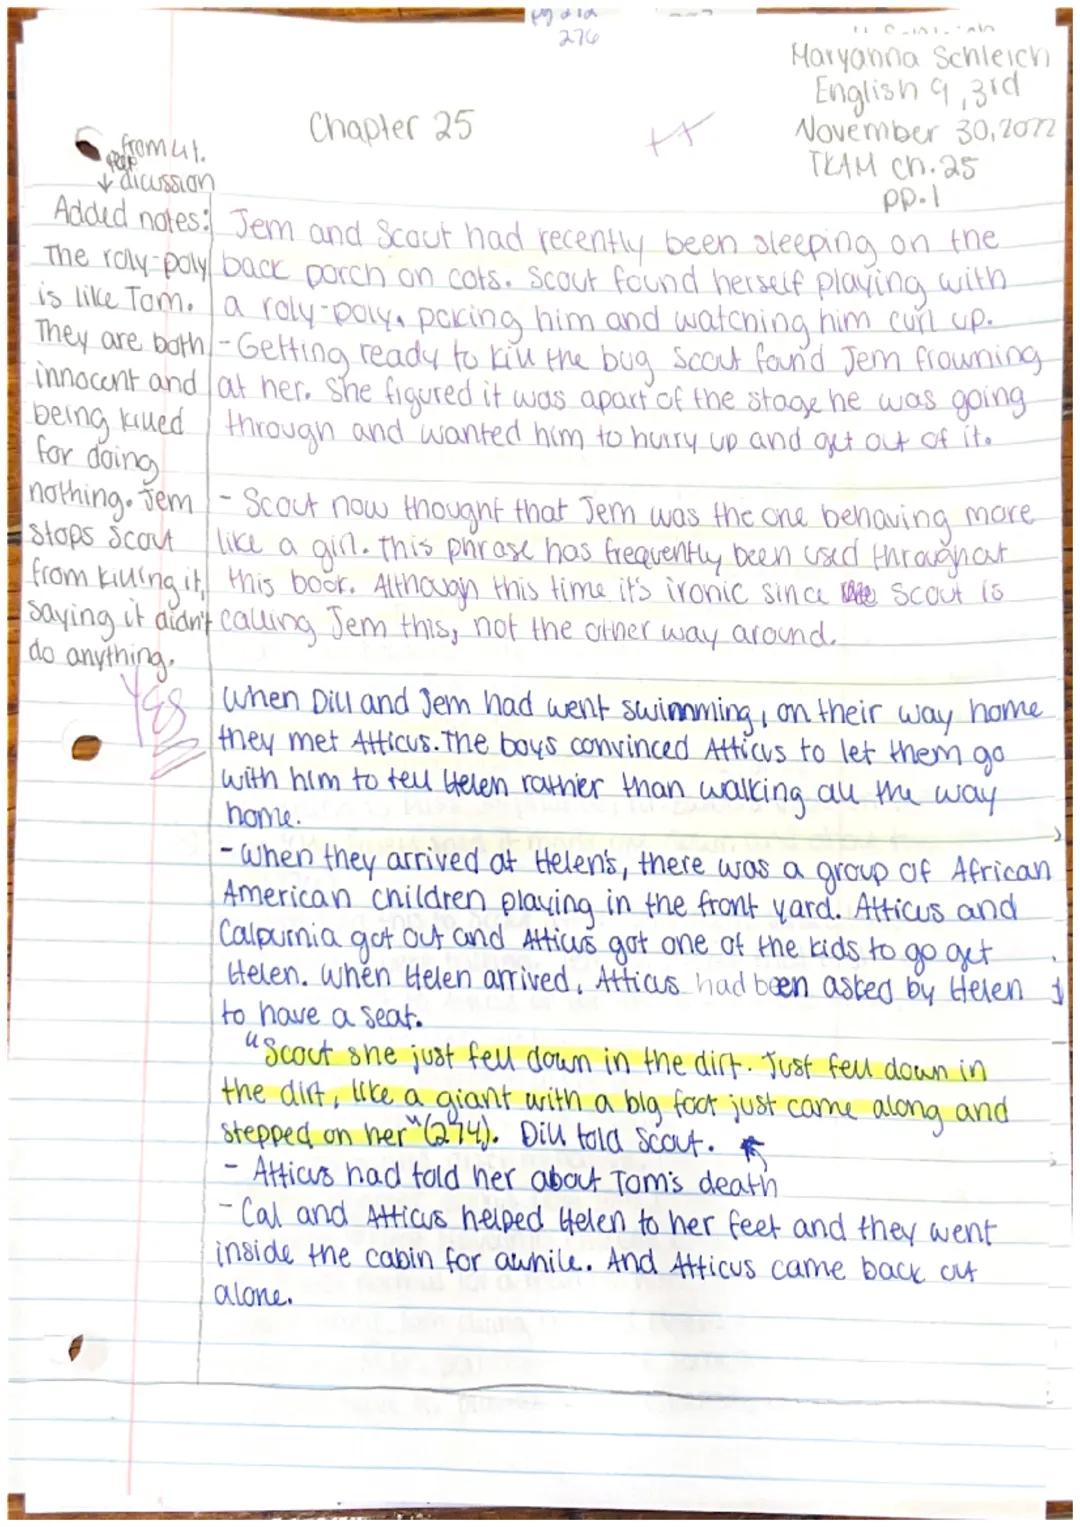 276
Maryanna Schleich
English 9, 3rd
November 30, 2022
TKAM Ch. 25
pp. 1
Chapter 25
++
from
↓ dicussion
Added notes:
The roly-poly
is like Tom.
They are both
innocent and
being killed
for doing
nothing. Jem
stops Scout
from killing it,
saying it didn't
do anything.
Yes
Jem and Scout had recently been sleeping on the
back porch on cots. Scout found herself playing with
a roly-poly, poking him and watching him curl up.
- Getting ready to kill the bug Scout found Jem frowning
at her. She figured it was apart of the stage he was going
through and wanted him to hurry up and get out of it.
- Scout now thought that Jem was the one behaving more
like a girl. This phrase has frequently been used throughout
this book. Although this time it's ironic since Scout is
calling Jem this, not the other way around.
When Dill and Jem had went swimming, on their way home
they met Atticus. The boys convinced Atticus to let them go
with him to tell Helen rather than walking all the way
home.
- When they arrived at Helen's, there was a group of African
American children playing in the front yard. Atticus and
Calpurnia got out and Atticus got one of the kids to go get
Helen. When Helen arrived, Atticus had been asked by Helen
to have a seat.
"Scout she just fell down in the dirt. Just fell down in
the dirt, like a giant with a big foot just came along and
stepped on her" (274). Dill told Scout.
- Atticus had told her about Tom's death
- Cal and Atticus helped Helen to her feet and they went
inside the cabin for awhile. And Atticus came back out
alone.